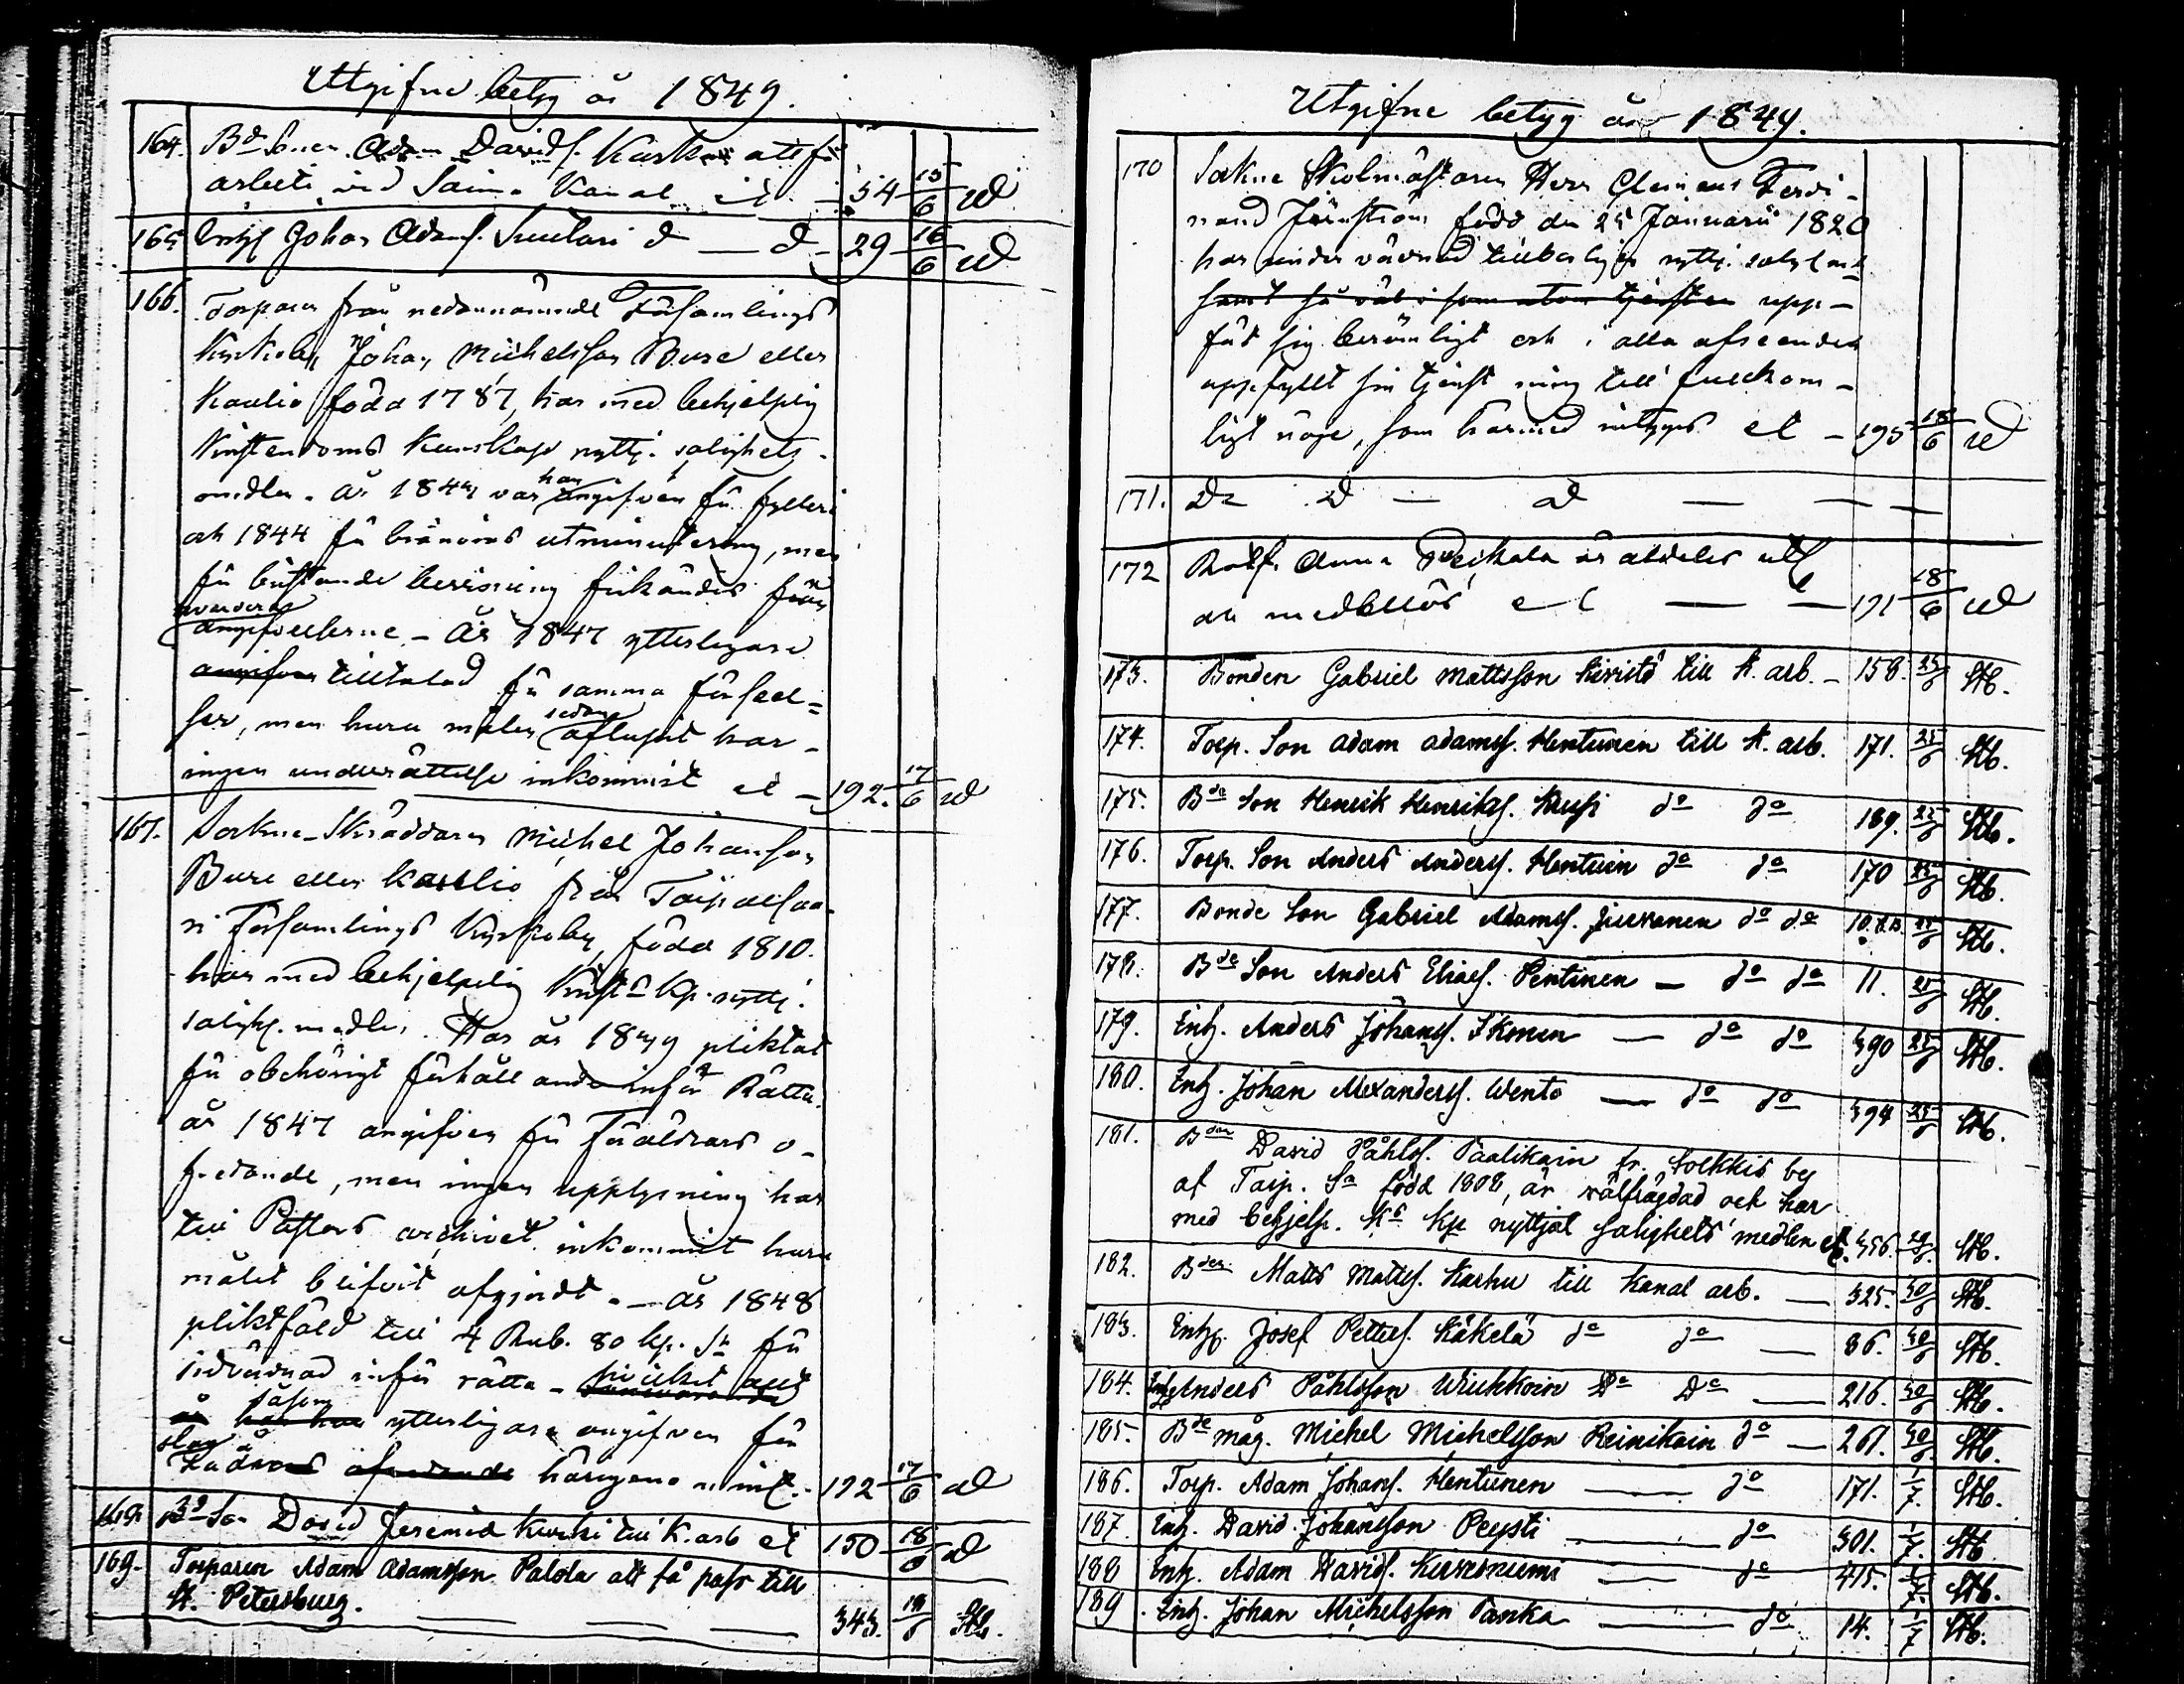 Utgifne betyg år 1849.
164. Bd Sonen Adam Davids. att få
arbete vid Saima Kanal et. 54 15/6
165 Inhs Johan Adams. Suutari d — d — 29 16/6
166. Torparen från nedannämnde Församlings
Kyrkoby Johan Michelsson Bure eller
Kaulio född 1787, har med behjelplig
Kristendoms Kunskap nyttj. salighets-
medlen. År 184 var han angifven för fylleri
och 1844 för bränvins utminutering, men
för bristande bevisning frikändes från
angifvelserne – År 1847 ytterligare
angifven tilltalad för samma förseel=
ser, men huru målen sedan aflupit har
ingen underrättelse inkommit et – 192. 17/6
167. Sockne-Skräddaren Michel Johansson
Bure eller Kaulio från Taipalsaa-
ri Församlings Kyrkoby, född 1810.
har med behjelplig Krist. Kp. nyttj.
saligh. medlen. Har år 18 pliktat
för obehörigt förhållande inför Rätta.
år 1847 angifven för Föräldrars o-
fredande, men ingen upplysning har
till Pastors archivet inkommit huru
målet blifvit afgjordt. — år 1848
pliktfäld till 4 Rub. 80 kp. Sr för
sidvördnad inför rätta –
såsom ytterligare angifven för
härigeno 192 17/6
168. Bd Son David Jeremias. Kurki till K. arb et 150 18/6
169. Torparen Adam Adamsson Palola att få pass till
St. Petersburg. — — — 343. 19/6 Stb.
Utgifne betyg år 1849.
170 Sockne Skolmästaren Herr Clemens Ferdi-
nand Jernström född den 25 Januarii 1820
har under vördnad tillbörligen nyttj. salig. med.
samt så väl i som utom tjensten upp-
fört sig berömligt och i alla afseenden
uppfyllt sin tjenst mig till fullkom-
ligt nöje, som härmed intygas et – 195 18/6
171. Do D — D — —
172 Rotf. Anna är aldeles utf
och medellös et — — 191 18/6
173. Bonden Gabriel Mattsson Kivistö till K. arb. – 158. 25/6 Stb.
174. Torp. Son Adam Adamss. Hentunen till K. arb. 171. 25/6 Stb.
175. Bde Son Henrik Henrikss. do do 189. 25/6 Stb.
176. Torp. Son Anders Anderss. Hentuin do do 170 25/6 Stb.
177. Bonde Son Gabriel Adamss. Juvonen do do 25/6 Stb.
178. Bde Son Anders Eliass. Pentinen — do do 11. 25/6 Stb.
179. Inh. Anders Johanss. Ikonen — do do 390 25/6 Stb.
180. Inh. Johan Alexanderss. Wento — do do 394 25/6 Stb.
181. Bden David Påhlss. Paalikain fr. Solkkis by
af Taip. Sn född 1808, är välfrägdad och har
med behjelp. Ks Kp nyttjat salighets medlen et. 356. 29/6 Stb.
182. Bden Matts Mattss. Karhu till Kanal arb. — 325. 30/6 Stb.
183. Inh. Josef Petterss. Käkelä do do — 86. 30/6 Stb.
184. Inh Anders Påhlsson Wiukkoin Do Do — 216. 30/6 Stb.
185. Bde måg. Michel Michelsson Reinikain do — 261. 30/6 Stb.
186. Torp. Adam Johanss. Hentunen — do 171. 1/7. Stb.
187. Inh. David Johansson Peysti — do 301. 1/7. Stb
188 Inh. Adam Davids. Kurkoniemi — do 415. 1/7. Stb.
189. Inh. Johan Michelsson Panka — do 14. 1/7 Stb.